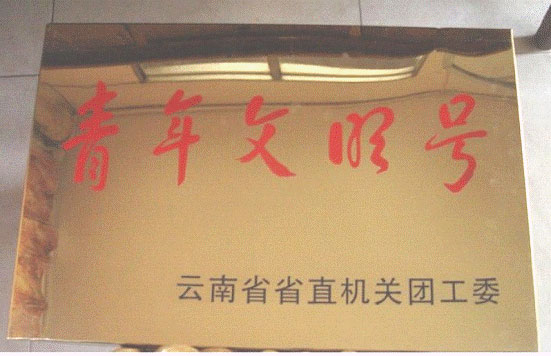 青年文明号
云南省省直机关团工委